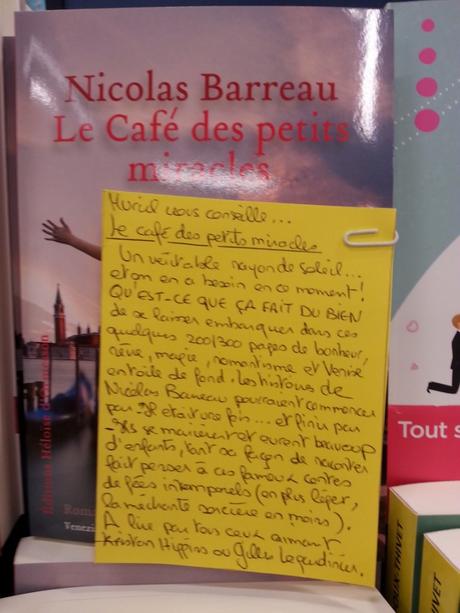 Nicolas Barreau
Le Café des petits
miracles
Muriel vous conseille...
Le café des petits miracles
Un véritable rayon de soleil...
et on en a besoin en ce moment!
QU'EST-CE QUE ÇA FAIT DU BIEN
de se laisser embarquer dans ces
quelques 200/300 pages de bonheur,
rêve, magie, romantisme et Venise
en toile de fond. Les histoires de
Nicolas Barreau pourraient commencer
par - Il était une fois... et finir par
- Ils se marièrent et eurent beaucoup
d'enfants, tant sa façon de raconter
fait penser à ces fameux contes
de fées intemporels (en plus léger,
la méchante sorcière en moins).
A lire pour tous ceux aimant
Kristan Higgins ou Gilles Legardinier.
Éditions Héloïse d'Ormesson
Roma
Venezi
Tout s
UX-THIVET
THIVET